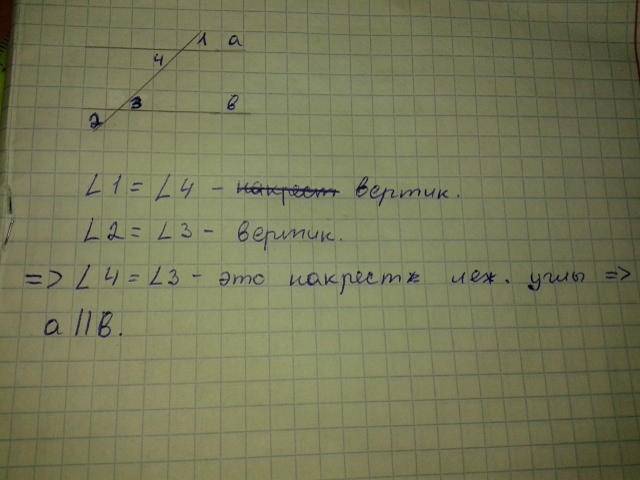 1 a
4
3 в
2
∠1 = ∠4 - накрест вертик.
∠2 = ∠3 - вертик.
=> ∠4 = ∠3 - это накрест леж. углы =>
a || в.